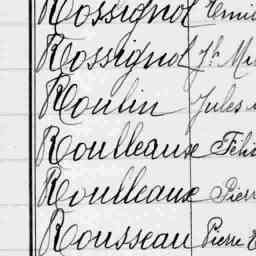 Rossignol
Rossignol Jh
Roulin Jules
Roulleaux
Roulleaux
Rousseau Pierre